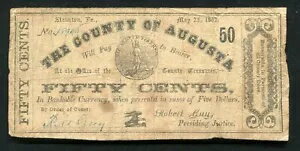 Staunton, Va., May 23, 1862.
THE COUNTY OF AUGUSTA
50
Will Pay to Bearer,
At the Office of the County Treasurer
FIFTY CENTS,
In Bankable Currency, when presented in sums of Five Dollars.
By Order of Court:
Robert Guy,
Presiding Justice.
FIFTY CENTS.
FIFTY CENTS.